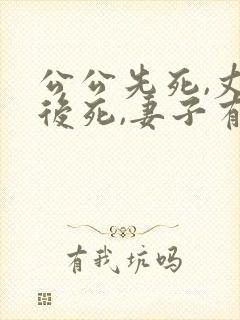 公公先死,丈
後死,妻子有
有我坑吗